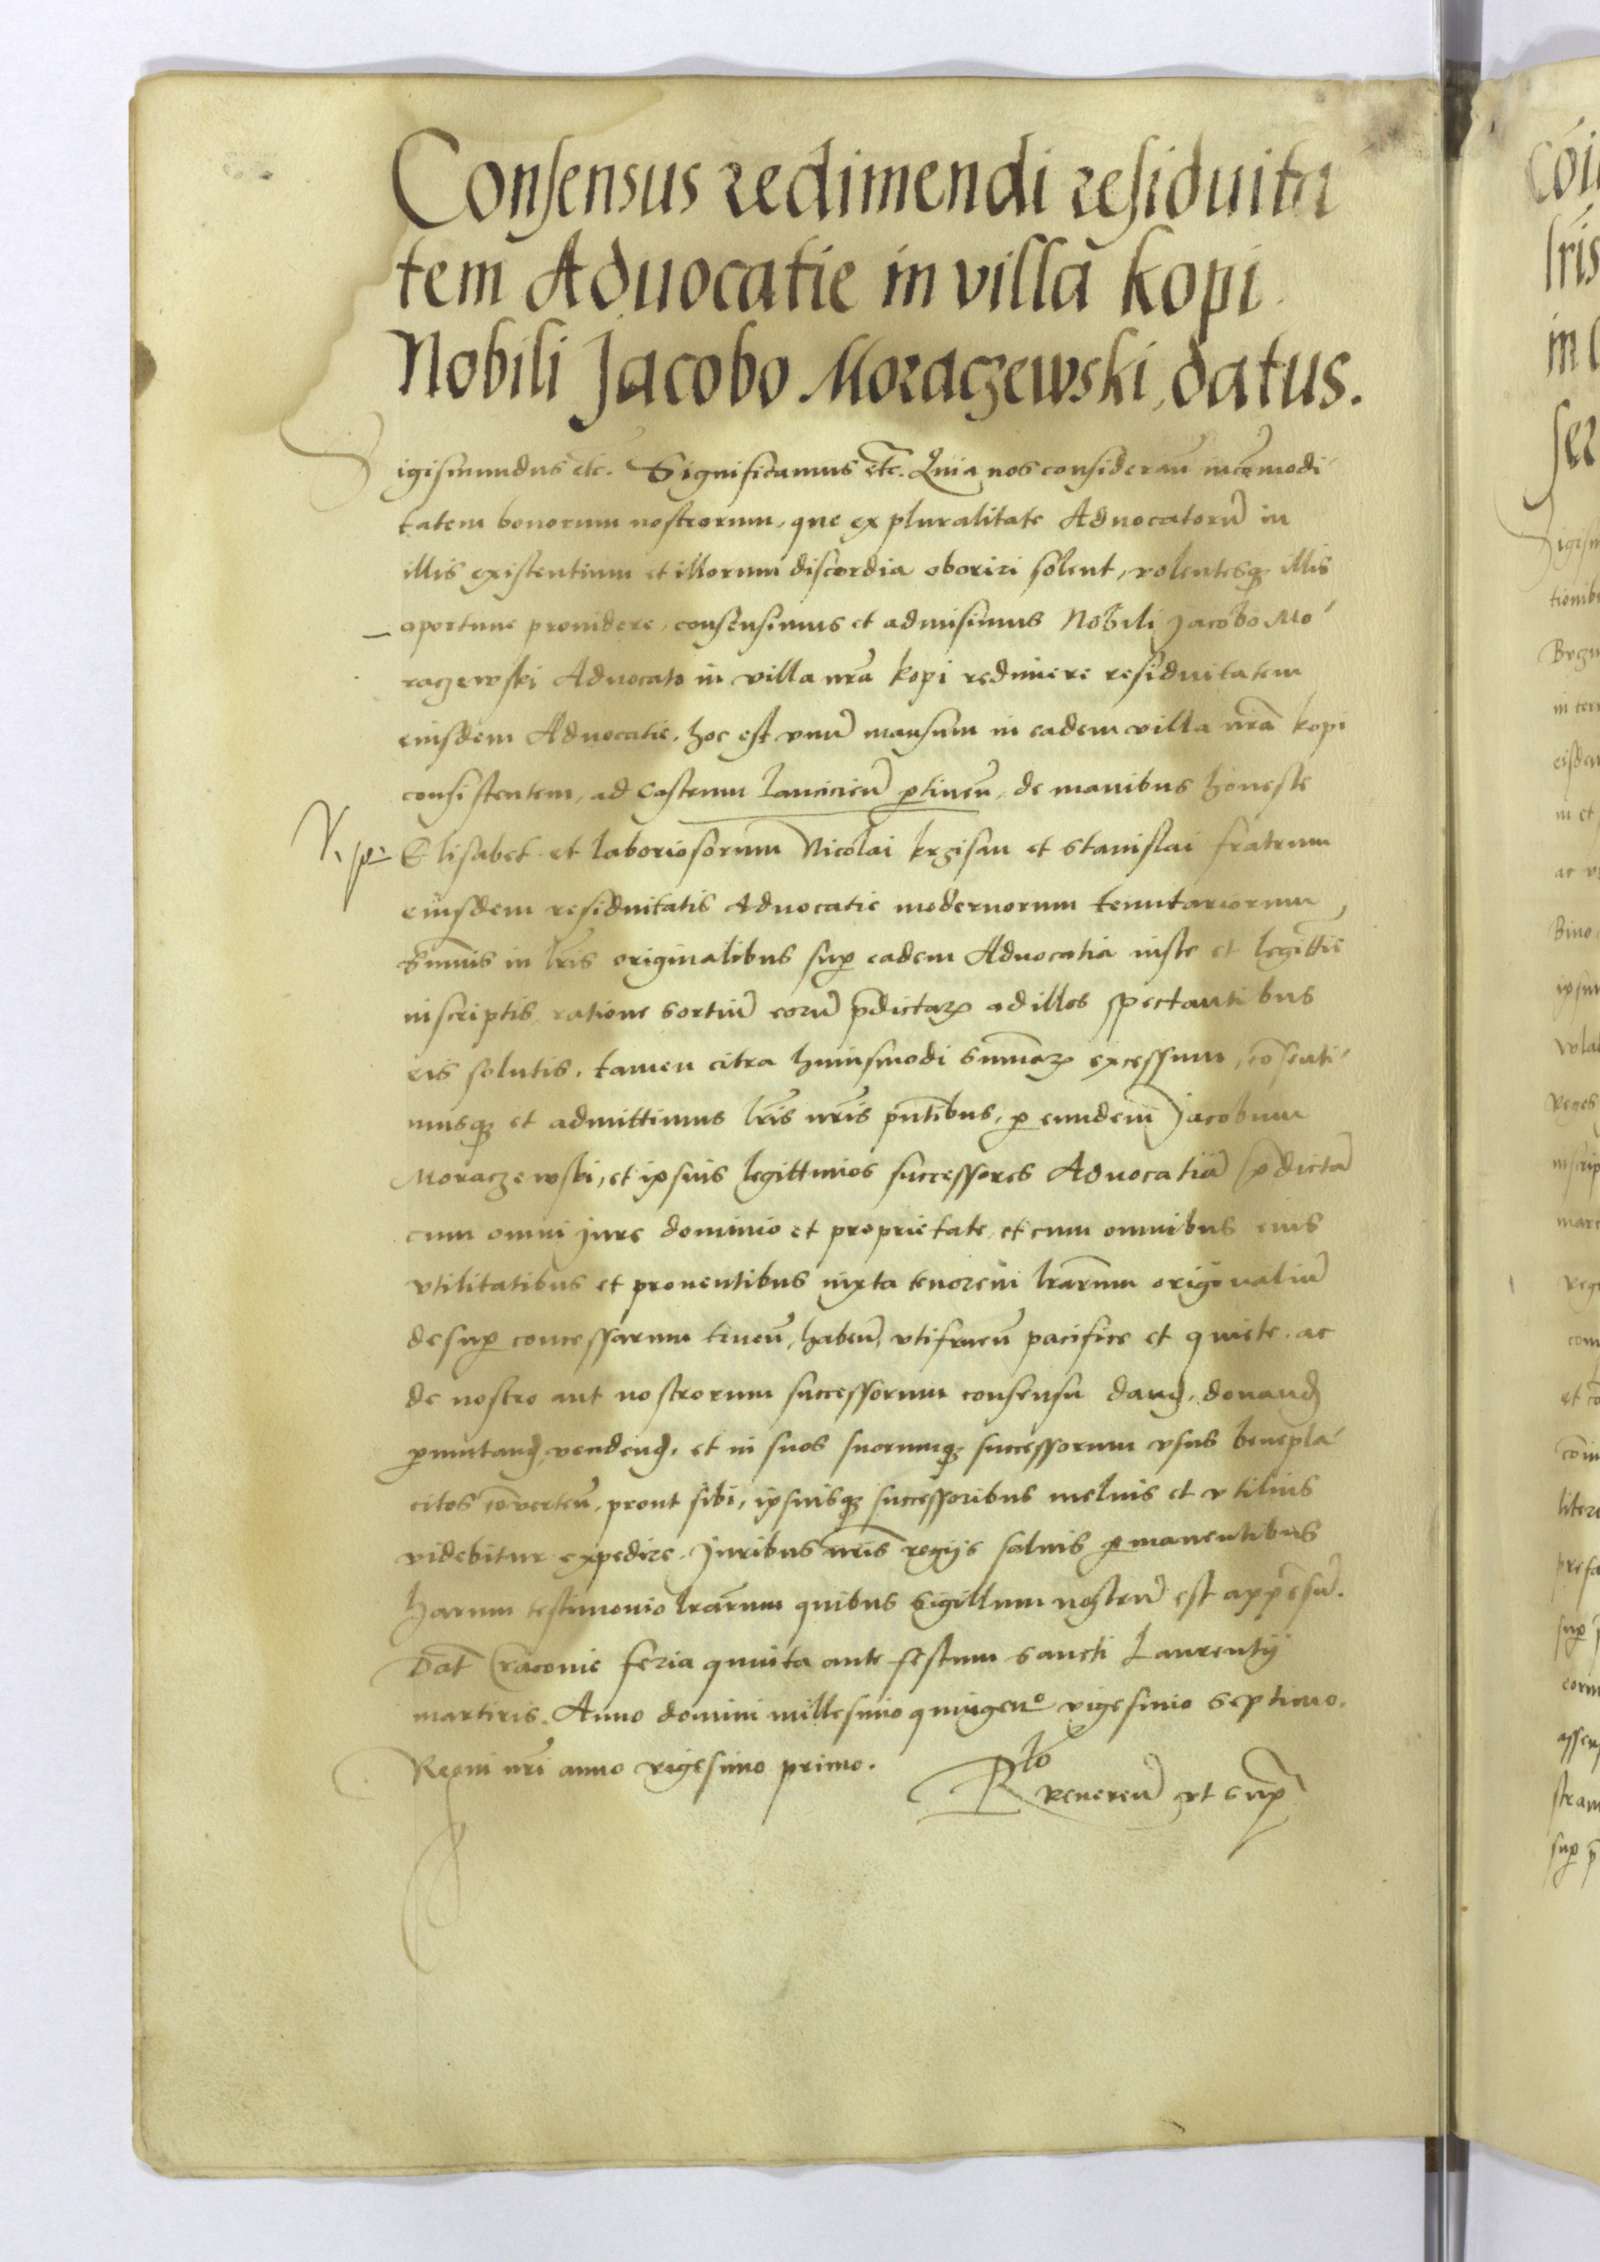 Consensus redimendi residuita
tem Aduocatie in villa kopi
Nobili Jacobo Moraczewski, datus.
Sigismundus etc. Significamus etc. Quia nos consideran̄ incōmodi
tatem bonorum nostrorum, que ex pluralitate Aduocatorū in
illis existentium et illorum discordia oboriri solent, volentesq3 illis
oportune prouidere, consensimus et admisimus Nobili Jacobo Mo
raczewski Aduocato in villa nr̄a kopi redimere residuitatem
eiusdem Aduocatie, hoc est vnū mansum in eadem villa nr̄a kopi
consistentem, ad Castrum Lanciciēn ꝑtineñ, de manibus honeste
Elisabet et laboriosorum Nicolai krzisan et Stanislai fratrum
eiusdem residuitatis Aduocatie modernorum tenutariorum,
sūmis in lr̄is originalibus suꝑ eadem Aduocatia iuste et legittīe
inscriptis ratione sortiū eorū p̄dictaꝝ ad illos spectantibus
eis solutis, tamen citra huiusmodi sūmaꝝ excessum, cōsenti
musq3 et admittimus lr̄is nr̄is pn̄tibus, ꝑ eundem Jacobum
Moraczewski, et ipsius legittimos successores Aduocatiā p̄dictā
cum omni jure dominio et proprietate, et cum omnibus eius
vtilitatibus et prouentibus iuxta tenorem lr̄arum originaliū
desuꝑ concessarum tineñ, habeñ, vtifrueñ pacifice et quiete. ac
de nostro aut nostrorum successorum consensu dand, donand
ꝑmutand, vendend, et in suos suorumq3 successorum vsus benepla
citos cōuerteñ, prout sibi, ipsiusq3 successoribus melius et vtilius
videbitur expedire. Juribus nr̄is regijs saluis ꝑmanentibus
harum testimonio lr̄arum quibus Sigillum nostrū est appēsū.
Dat̄ Cracouie feria quinta ante festum sancti Laurentij
martiris. Anno domini millesimo quingen̄º vigesimo septimo.
Regni nr̄i anno vigesimo primo.
Rlo
venereñ vt suꝑ